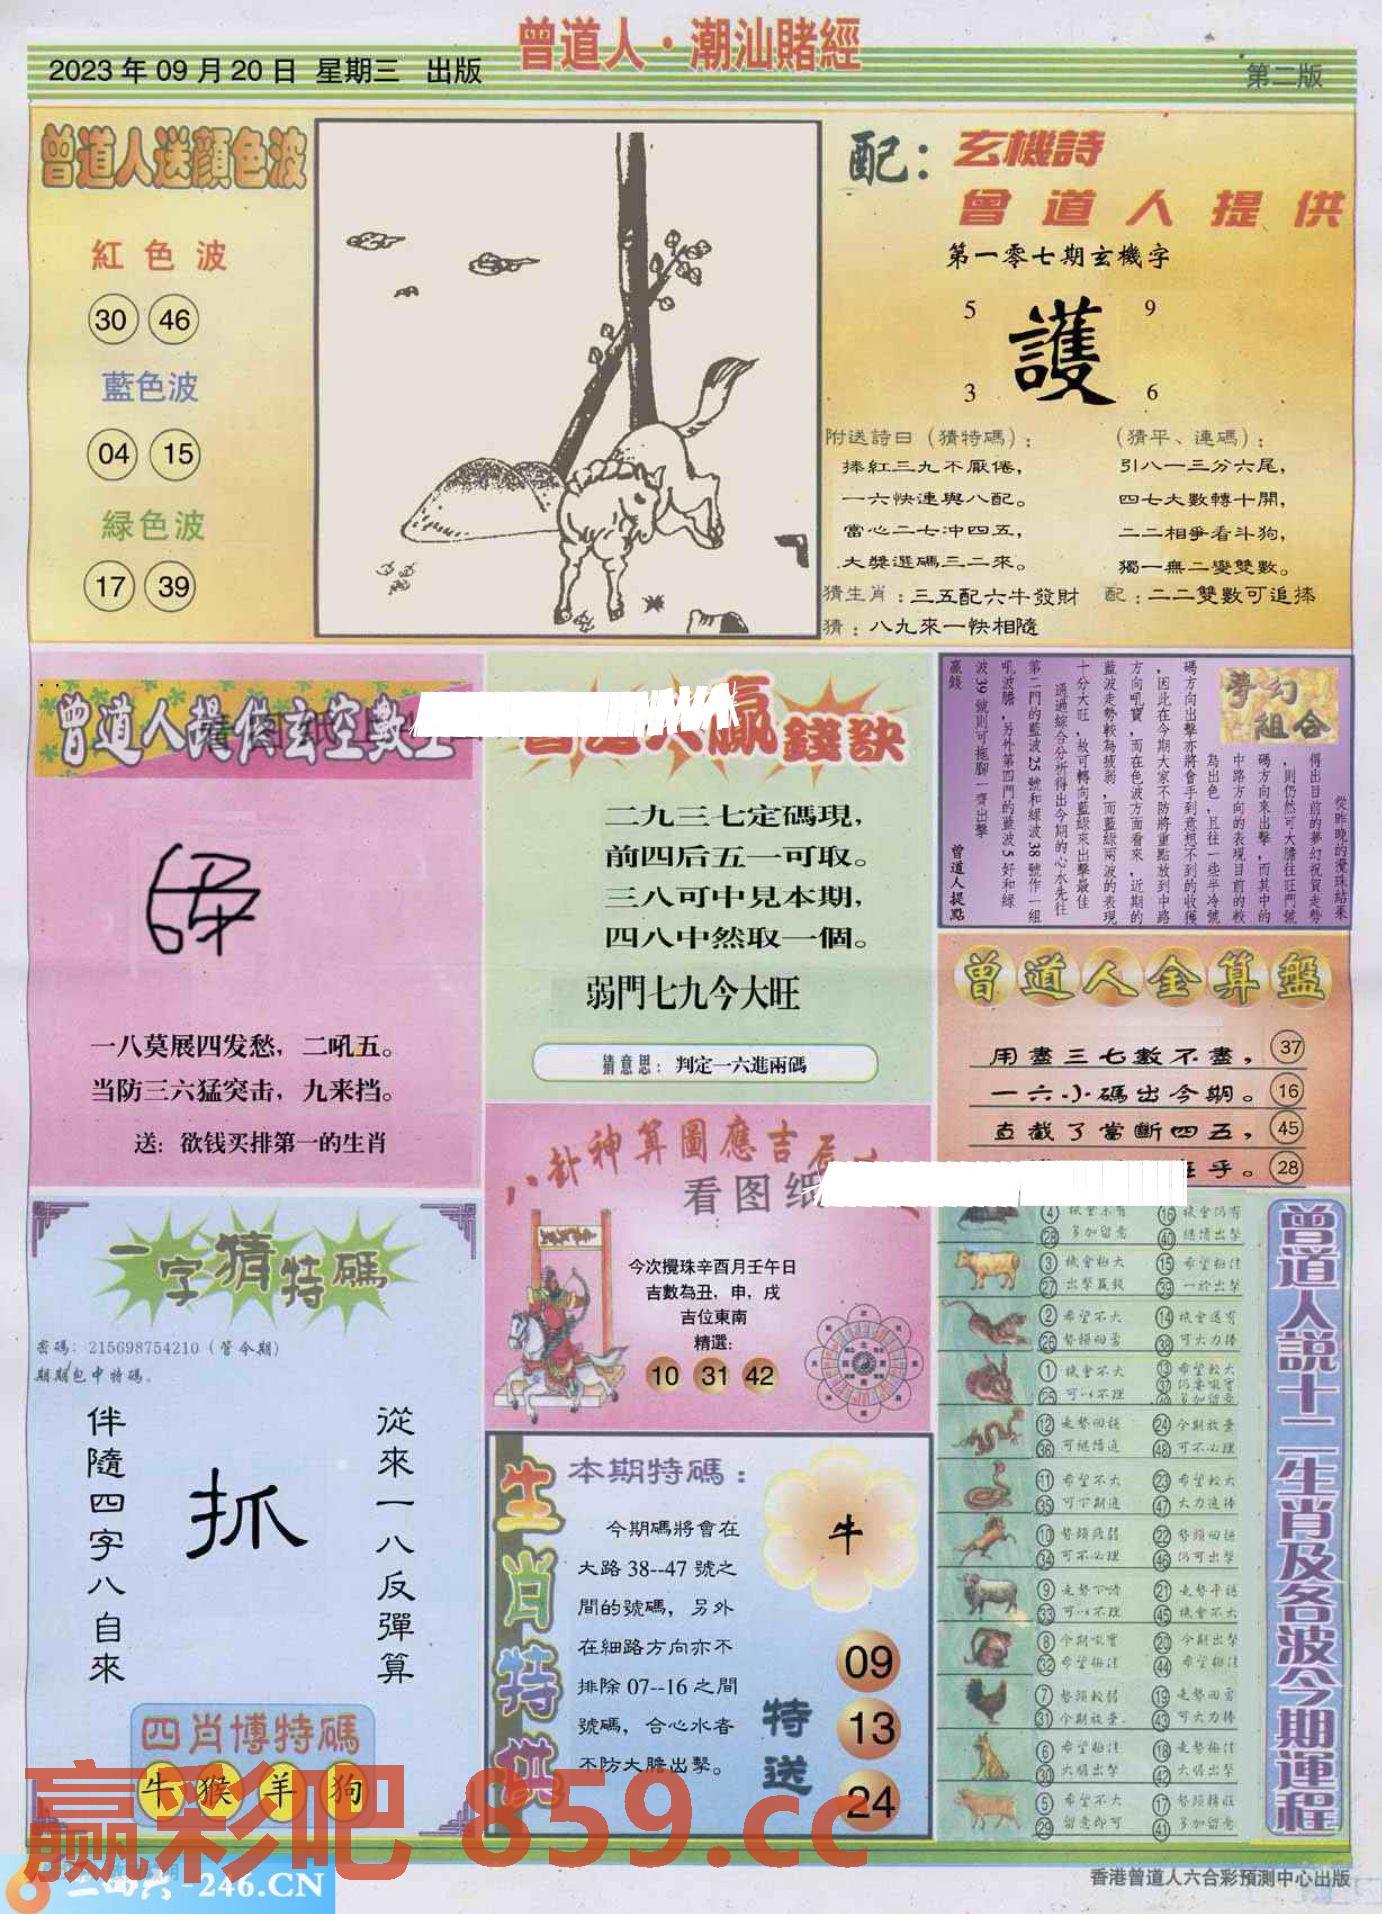 曾道人·潮汕賭經
2023 年 09 月 20 日 星期三 出版
第二版
曾道人送顔色波
紅色波
30 46
藍色波
04 15
緑色波
17 39
配：玄機詩
曾道人提供
第一零七期玄機字
5 9
護
3 6
附送詩曰（猜特碼）：
捧紅三九不厭倦，
一六快連與八配。
當心二七冲四五，
大獎選碼三二來。
猜生肖：三五配六牛發財
猜：八九來一快相隨
（猜平、連碼）：
引八一三分六尾，
四七大數轉十開，
二二相爭看斗狗，
獨一無二變雙數。
配：二二雙數可追捧
曾道人提供玄空數
一八莫展四发愁，二吼五。
当防三六猛突击，九来挡。
送：欲钱买排第一的生肖
贏錢訣
二九三七定碼現，
前四后五一可取。
三八可中見本期，
四八中然取一個。
弱門七九今大旺
猜意思：判定一六進兩碼
夢幻
組合
從昨晚的攪珠結果
得出目前的夢幻祝賀走勢
，則仍然可大膽往旺門號
碼方向來出擊，而其中的
中路方向的表現目前的較
為出色，且往一些半冷號
碼方向出擊亦將會手到意想不到的收獲
，因此在今期大家不防將重點放到中路
方向吼寶，而在色波方面看來，近期的
藍波走勢較為疲弱，而藍綠兩波的表現
十分大旺，故可轉向藍綠來出擊最佳
通過綜合分析得出今期的心水先往
第二門的藍波25號和綠波38號作一組
吼波膽，另外第四門的藍波5好和綠
波39號則可拖腳一齊出擊
贏錢
曾道人提點
曾道人金算盤
用盡三七數不盡， 37
一六小碼出今期。 16
直截了當斷四五， 45
乎。 28
八卦神算圖應吉
看图纸
今次攪珠辛酉月壬午日
吉數為丑，申，戌
吉位東南
精選：
10 31 42
一字猜特碼
密碼：215698754210（管今期）
期期包中特碼。
從來一八反彈算
抓
伴隨四字八自來
四肖博特碼
牛 猴 羊 狗
生肖特供
本期特碼：
今期碼將會在
大路 38--47 號之
間的號碼，另外
在細路方向亦不
排除 07--16 之間
號碼，合心水者
不防大膽出擊。
牛
特送
09
13
24
曾道人說十二生肖及各波今期運程
4 16 機會仍有
28 多加留意 40 繼續出擊
3 機會極大 15 希望極佳
27 出擊贏錢 39 一於出擊
2 希望不大 14 機會還有
26 勢頭回勇 38 可大力捧
1 機會不大 13 希望較大
25 可以不理 37 仍要吼實
多加留意
12 走勢回穩 24 今期放棄
36 可繼續追 48 可不必理
11 希望不大 23 希望較大
35 可下期追 47 大力追捧
10 勢頭疲弱 22 勢頭回穩
34 可不必理 46 仍可出擊
9 走勢下滑 21 走勢平穩
33 可以不理 45 機會不大
8 今期吼實 20 今期出擊
32 希望極佳 44 希望極佳
7 勢頭較弱 19 走勢回勇
31 今期放棄. 43 可大力捧
6 希望極佳 18 走勢極佳
30 大膽出擊 42 大膽出擊
5 希望不大 17 勢頭轉旺
29 留意即可 41 多加留意
赢彩吧 859.cc
二四六-246.CN
香港曾道人六合彩預測中心出版